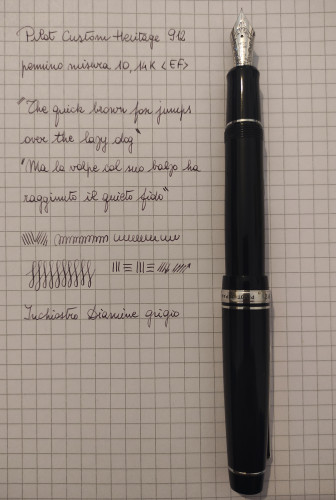 Pilot Custom Heritage 912
pennino misura 10, 14K <EF>
"The quick brown fox jumps
over the lazy dog"
"Ma la volpe col suo balzo ha
raggiunto il quieto fido"
Inchiostro Diamine grigio